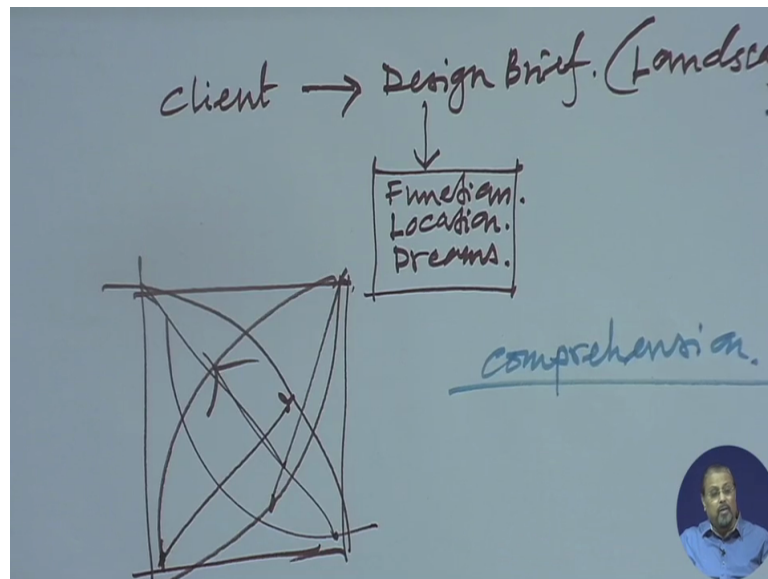 Client → Design Brief. (Landsca
Function.
Location.
Dreams.
comprehension.